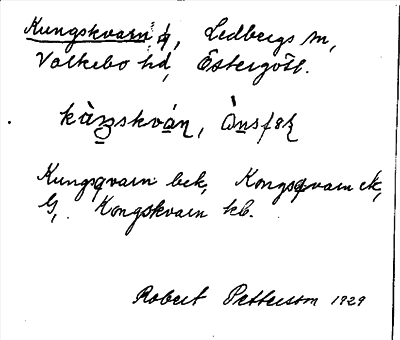 Kungskvarn g, Ledbergs sn,
Valkebo hd, Östergötl.
kàŋskván,
Kungsqvarn bek, Kongsqvarn ek,
G, Kongskvarn kb.
Robert Pettersson 1929